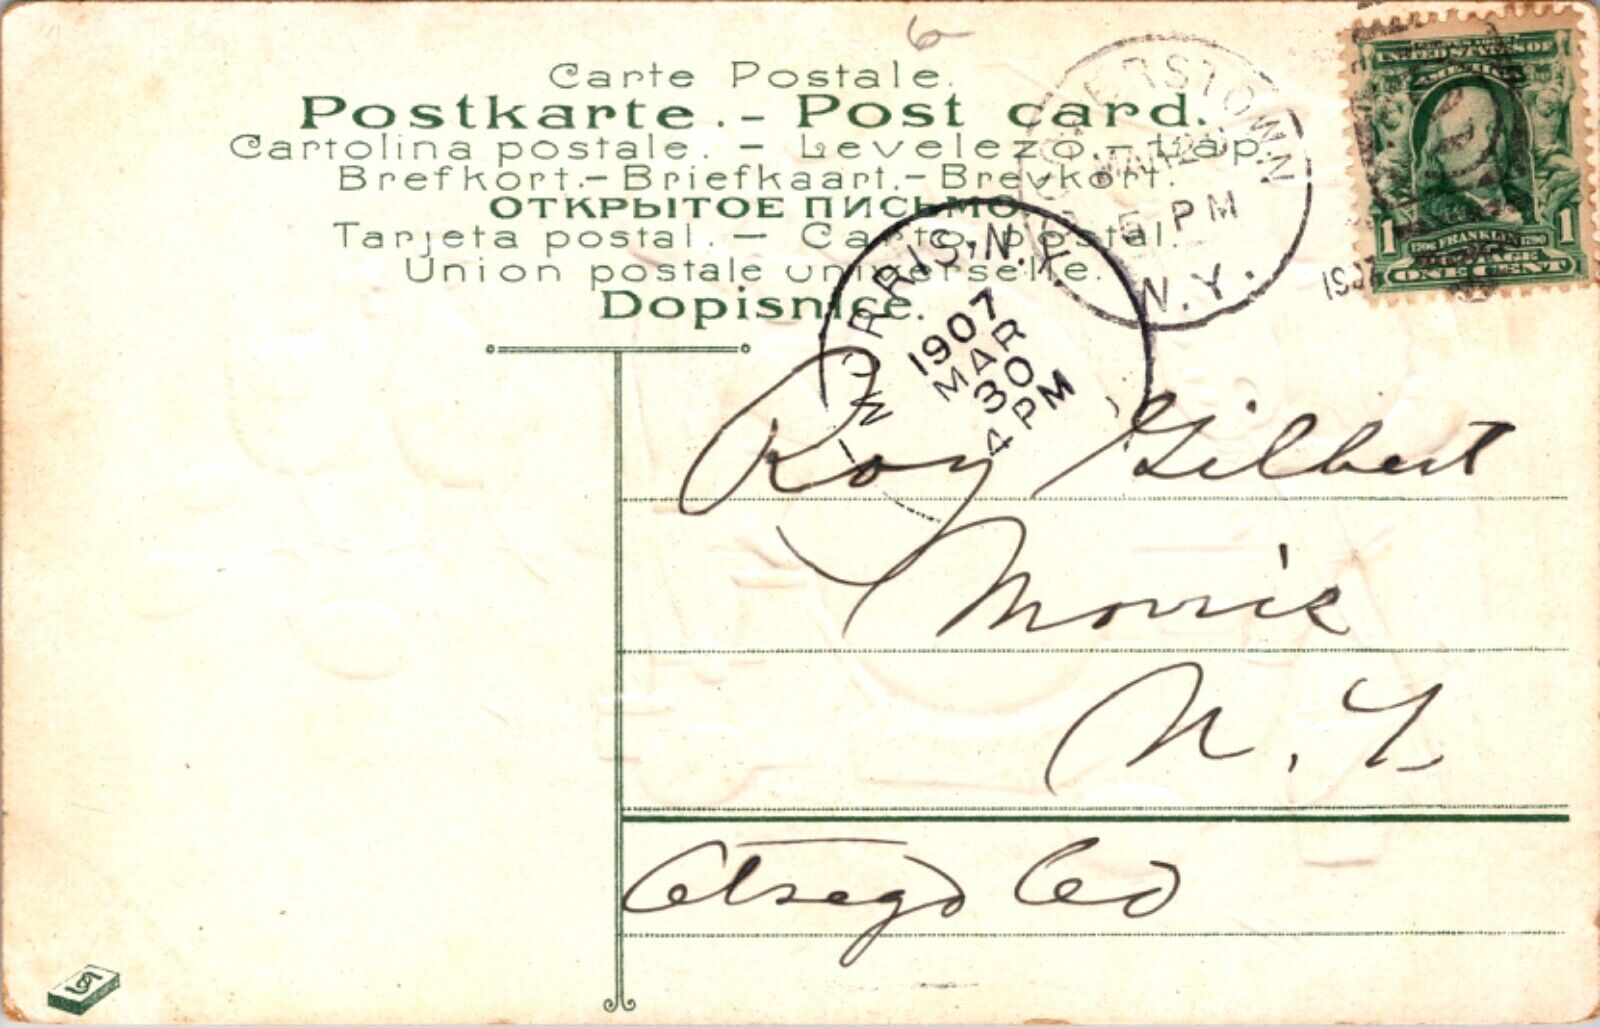 6
Carte Postale.
Postkarte. - Post card.
Cartolina postale. - Levelező-Lap.
Brefkort.- Briefkaart.- Brevkort.
ОТКРЫТОЕ ПИСЬМО
Tarjeta postal. - Carto postal.
Union postale universelle.
Dopisnice.
N.Y.
5 PM
MORRIS, N.Y.
1907
MAR
30
4 PM
UNITED STATES OF
AMERICA
1706 FRANKLIN 1790
POSTAGE
1 ONE CENT 1
Roy Gilbert
Morris
N. Y.
Otsego Co